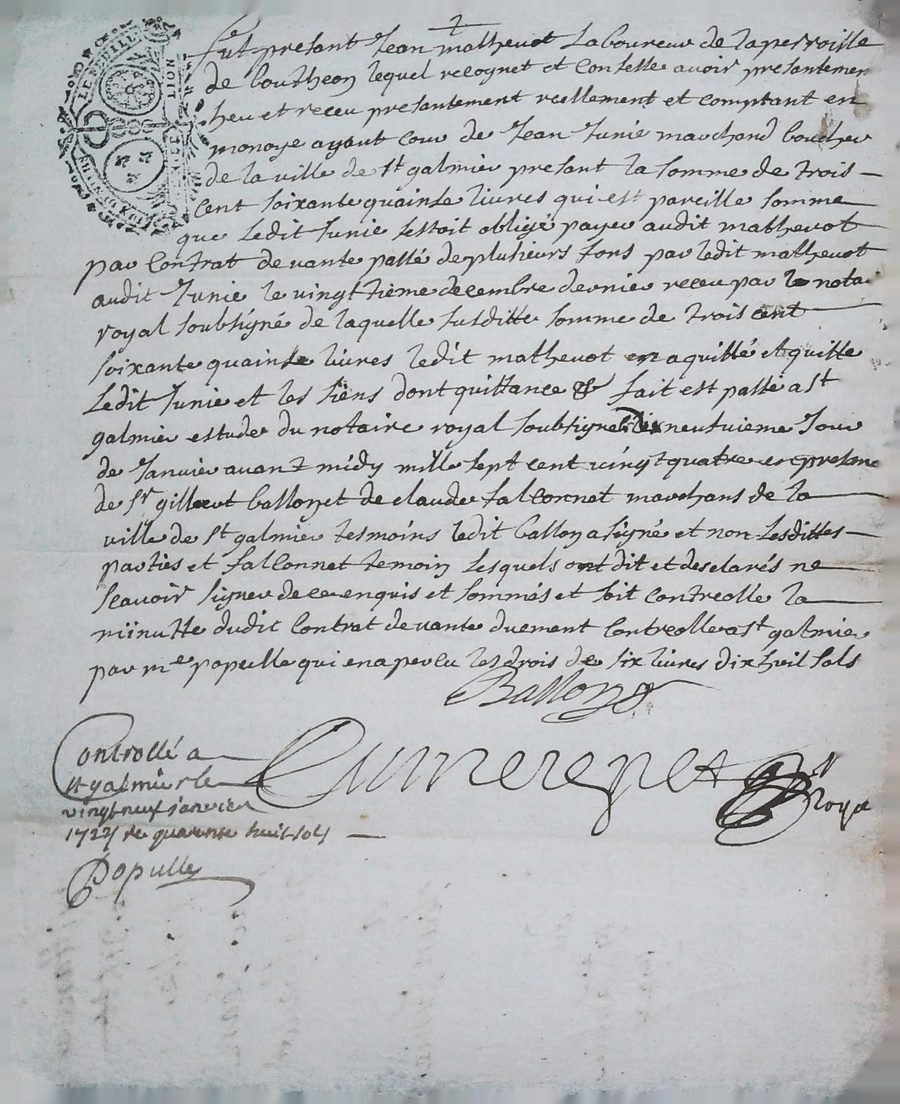 fut presant Jean mathevot Laboureur de la perroisse
de boutheon lequel recognet et confesse avoir presantemen
heu et receu presantement reellement et comptant en
monoye ayant cour de Jean Junie marchand boucher
de la ville de st galmier presant la somme de trois
cent soixante quainse livres qui est pareille somme
que Ledit Junie sestoit obligé payer audit mathevot
par Contrat de vante passé de plusieurs fons par ledit mathevot
audit Junie le vingttième decembre dernier receu par le nota
royal soubsigné de laquelle susditte somme de trois cent
soixante quainse livres ledit mathevot en a quitté et quitte
Ledit Junie et les siens dont quittance & fait est passé a st
galmier estude du notaire royal soubsigné dix neufvieme Jour
de Janvier avant midy mille sept cent vingt quatre en presan
de sr gilbert ballonet de claude falconnat marchans de la
ville de st galmier tesmoins ledit ballon a signé et non Lesdittes
parties et falconnet temoin Lesquels ont dit et desclarés ne
scavoir signer de ce enquis et sommés et soit Controlle la
minutte dudit Contrat de vante duement Controlle a st galmier
par me populle qui en a percu les drois de six livres dix heit sols
Ballon
Controllé a
st galmier le
vingt neuf janvier
1724 re quarente huit sols
Populle
royal
LION